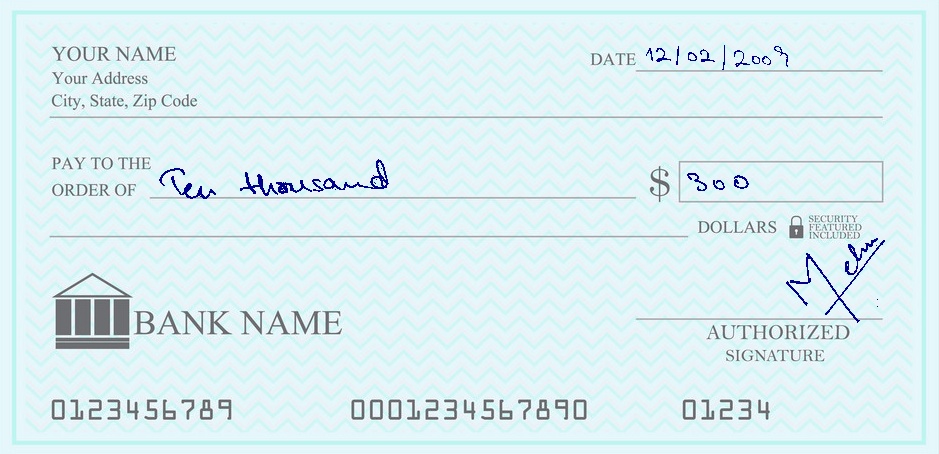 YOUR NAME
Your Address
City, State, Zip Code
DATE 12/02/2009
PAY TO THE
ORDER OF Ten thousand $ 300
DOLLARS
SECURITY
FEATURED
INCLUDED
BANK NAME
AUTHORIZED
SIGNATURE
0123456789 0001234567890 01234